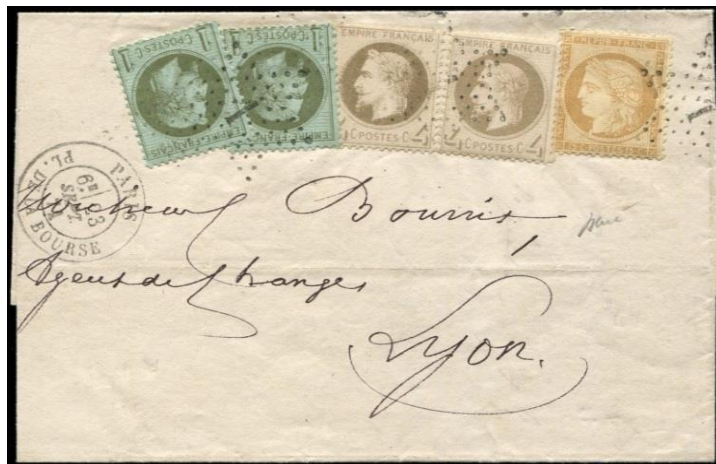 1 C. POSTES. C. 1
EMPIRE·FRANÇAIS
1 C. POSTES. C. 1
EMPIRE·FRANÇAIS
EMPIRE FRANÇAIS
4 C POSTES C. 4
EMPIRE FRANÇAIS
4 C POSTES C. 4
REPUB. FRANC.
15 C. POSTES 15 C.
1
1
PARIS
6E 23 SEPT.
PL. DE LA BOURSE
Bourris,
Agent de changes
Lyon.